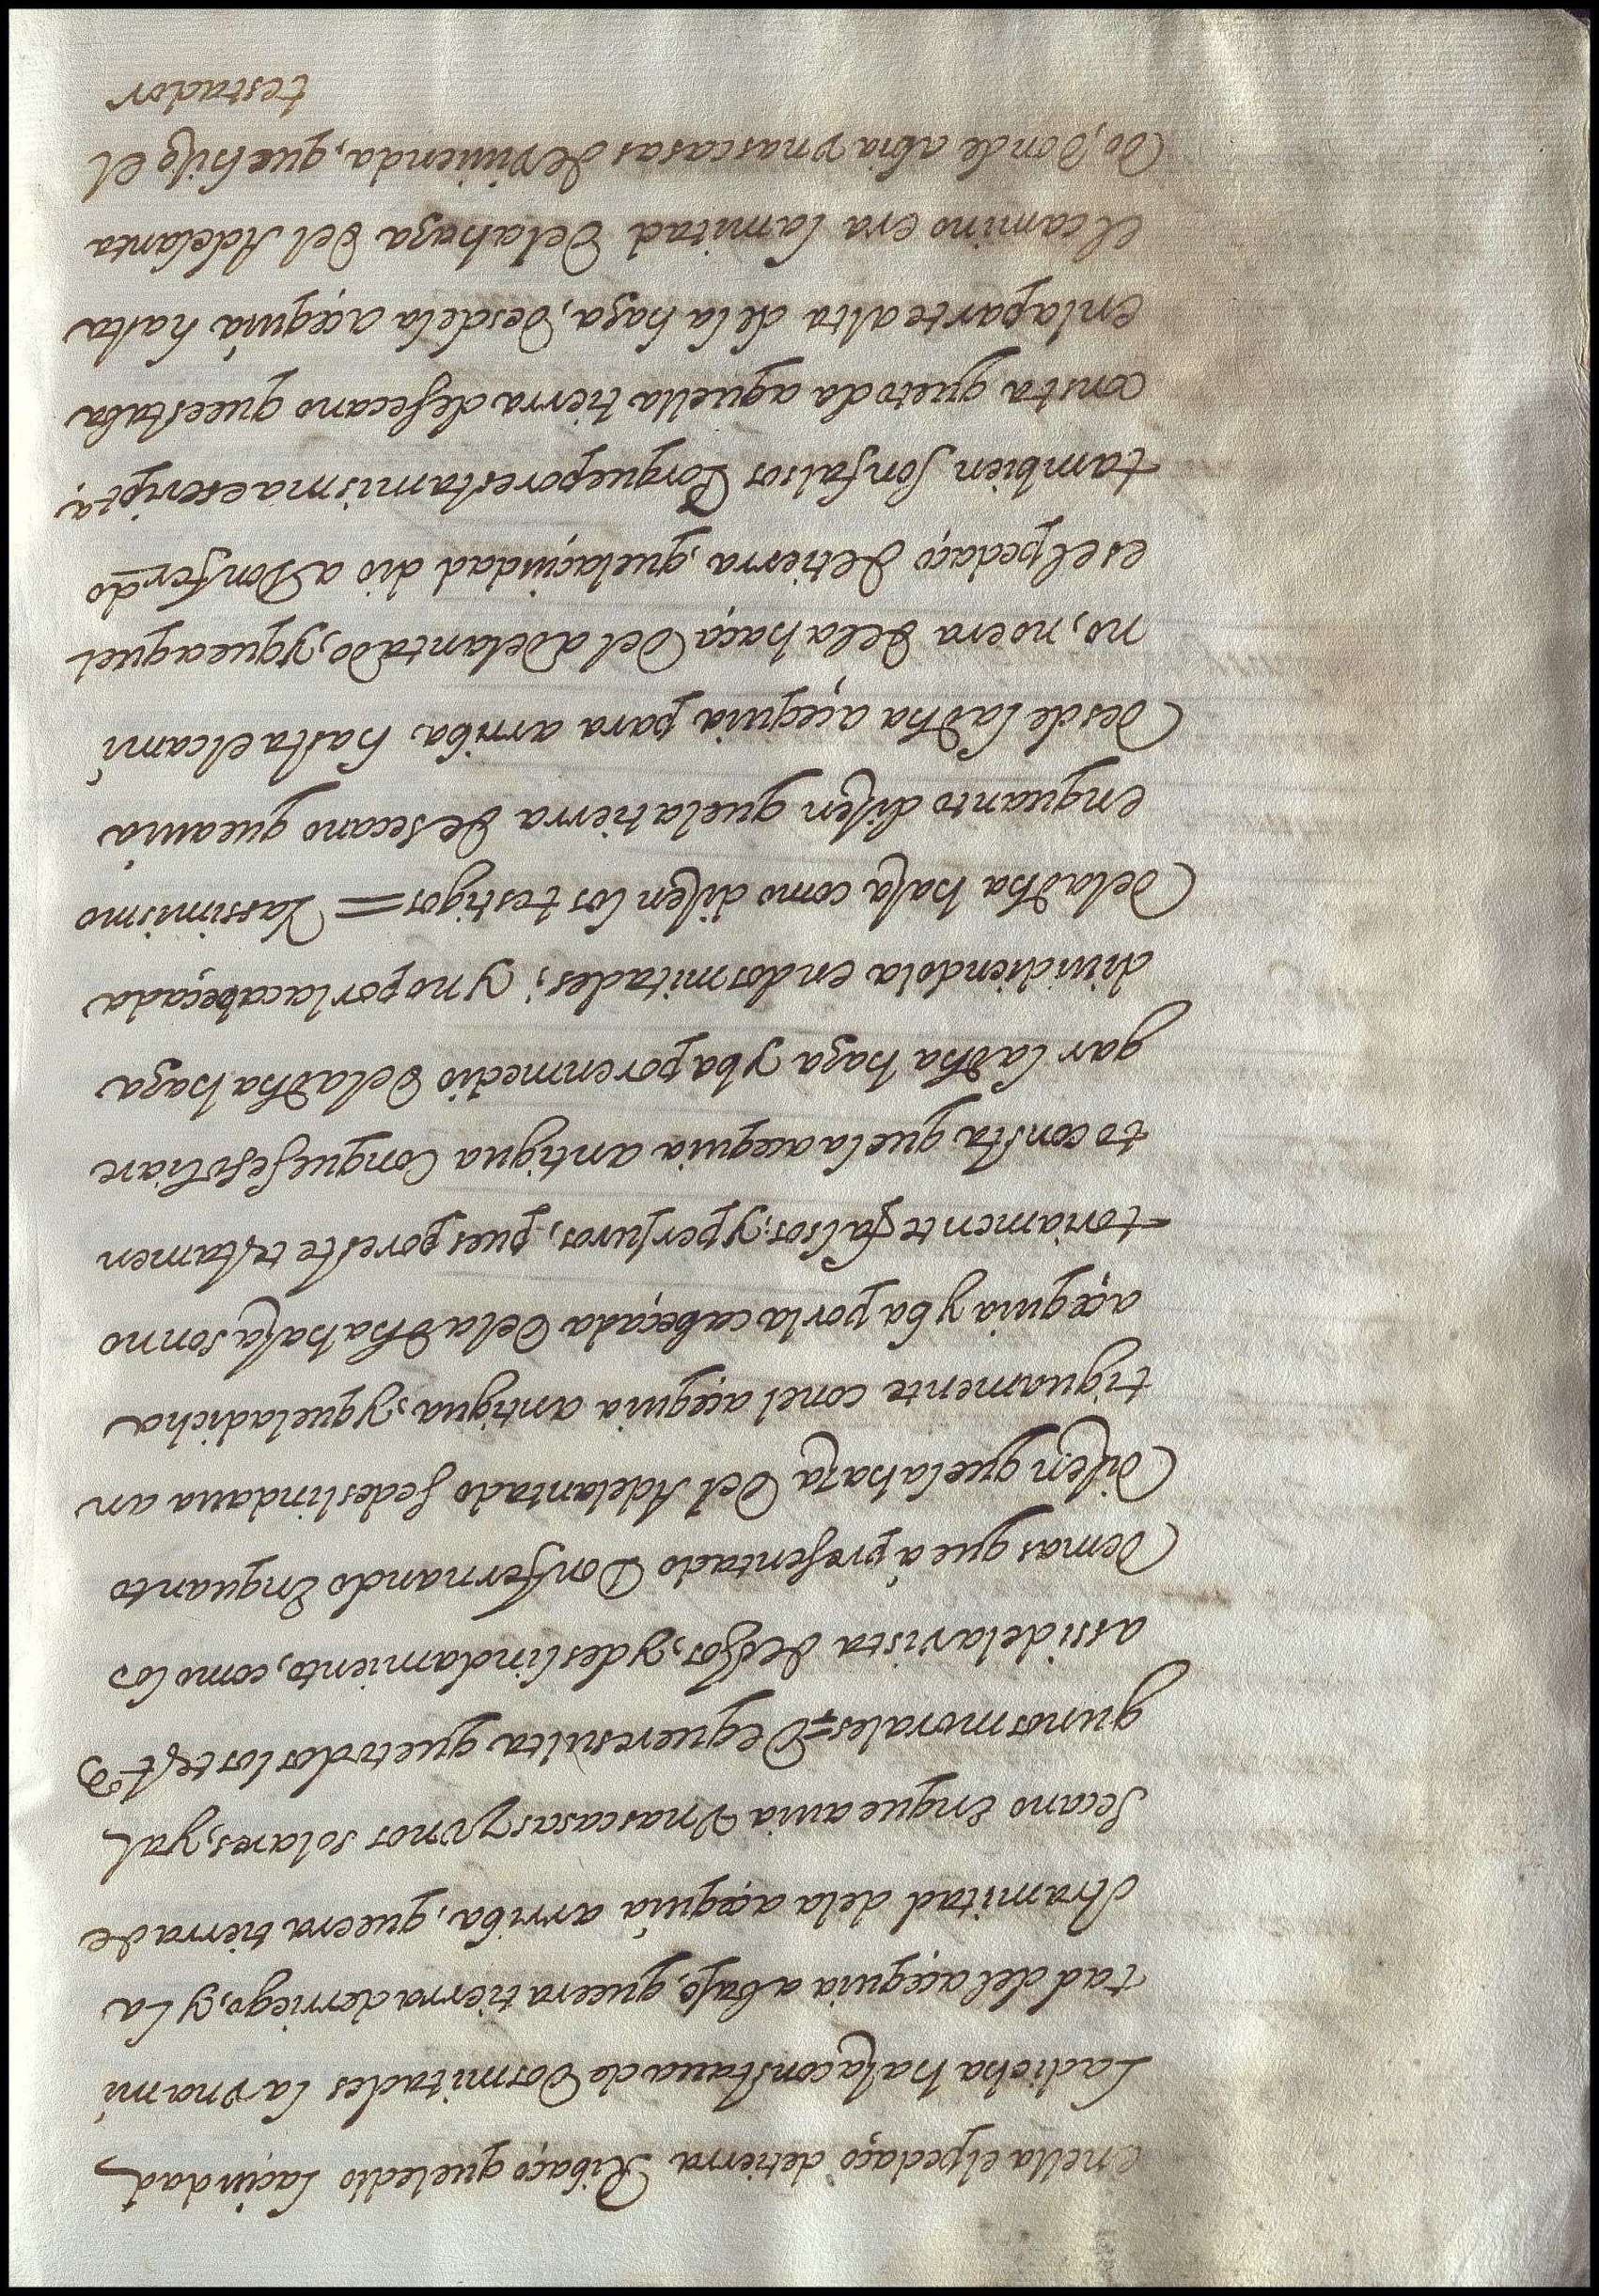 enella el pedaço de tierra Ribaço que le dio la çiudad
La dicha haza constaua de Dos mitades la vna mi
tad del açequia abajo, que era tierra de rriego, y La
otra mitad de la açequia arriba, que era tierra de
secano En que auia vnas casas, y vnos solares, y al
gunos morales = De que resulta que todos los testos
assi de la vista de ojos, y deslindamiento, como los
Demas que a presentado Don fernando En quanto
Dizen que la haza Del Adelantado se deslindaua an
tiguamente con el açequia antigua, y que la dicha
açequia yba por la cabeçada De la dha haza son no
toriamente falsos, y perjuros, pues por este testamen
to consta que la açequia antigua Con que se solia re
gar la dha haza yba por en medio De la dha haza
diuidiendola en dos mitades, y no por la cabeçada
De la dha haza como dizen los testigos = Y assimismo
en quanto dizen que la tierra de secano que auia
Desde la dha açequia para arriba hasta el cami
no, no era de la haça Del adelantado, y que aquel
es el pedaço de tierra, que la çiudad dio a Don ferdo
tambien son falsos Porque por esta misma escripta
consta que toda aquella tierra de secano que estaba
en la parte alta de la haza, desde la açequia hasta
el camino era la mitad De la haza Del Adelanta
Do, Donde abia vnas casas de viuienda, que hizo el
testador